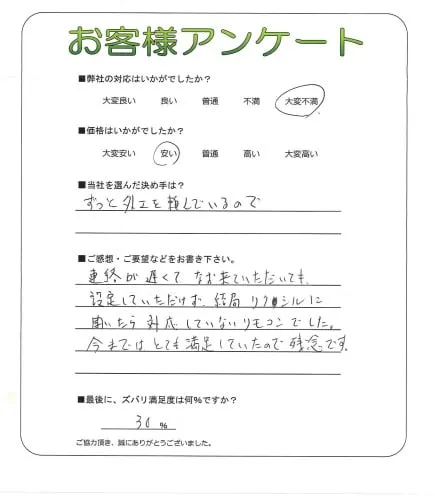 お客様アンケート
■弊社の対応はいかがでしたか？
大変良い 良い 普通 不満 大変不満
■価格はいかがでしたか？
大変安い 安い 普通 高い 大変高い
■当社を選んだ決め手は？
ずっと外工を頼んでいるので
■ご感想・ご要望などをお書き下さい。
連絡が遅くて なお来ていただいても、
設定していただけず、結局 リクシルに
聞いたら 対応していないリモコンでした。
今までは とても満足していたので 残念です。
■最後に、ズバリ満足度は何%ですか？
30 %
ご協力頂き、誠にありがとうございました。